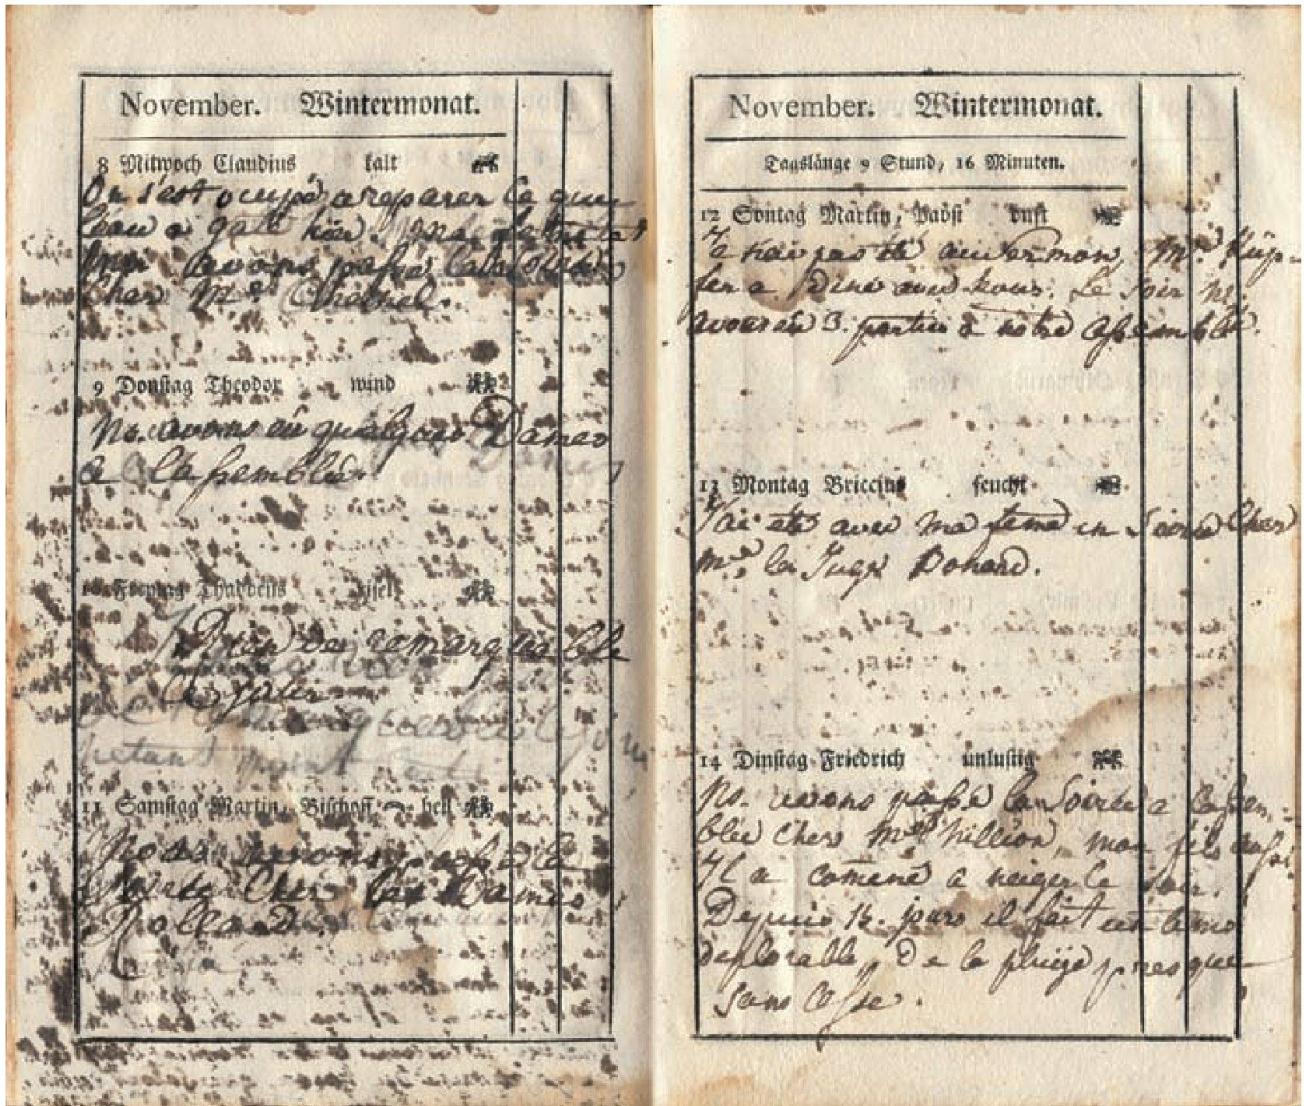 November. Wintermonat.
8 Mitwoch Claudius kalt
On s'est ocupé a reparer ce que
l'eau a gaté hier.
avons passé la soirée
Chez Me
9 Donstag Theodor wind
Ns. avons eû quelques Dames
a l'assemblée.
10 Freytag Thaddeus
Rien de remarquable
11 Samstag Martin, Bischoff hell
Nous avons passé la
soirée Chez les Dames
Rolland.
November. Wintermonat.
Tagslänge 9 Stund, 16 Minuten.
12 Sontag Martin, Pabst dufft
Je n'ai pas été au Sermon, Mr. Küp-
fer a Diné avec Nous. Le Soir Ns.
avons eû 3. parties a notre assemblée.
13 Montag Briccius feucht
J'ai été avec ma feme en Soirée Chez
Me la Juge Bonard.
14 Dinstag Friedrich unlustig
Ns. avons passé la Soirée a l'assem-
blée Chez Million, mon fils aussi
Il a comencé a neiger le soir.
Depuis 15. jours il fait un tems
deplorable, de la pluÿe presque
sans cesse.